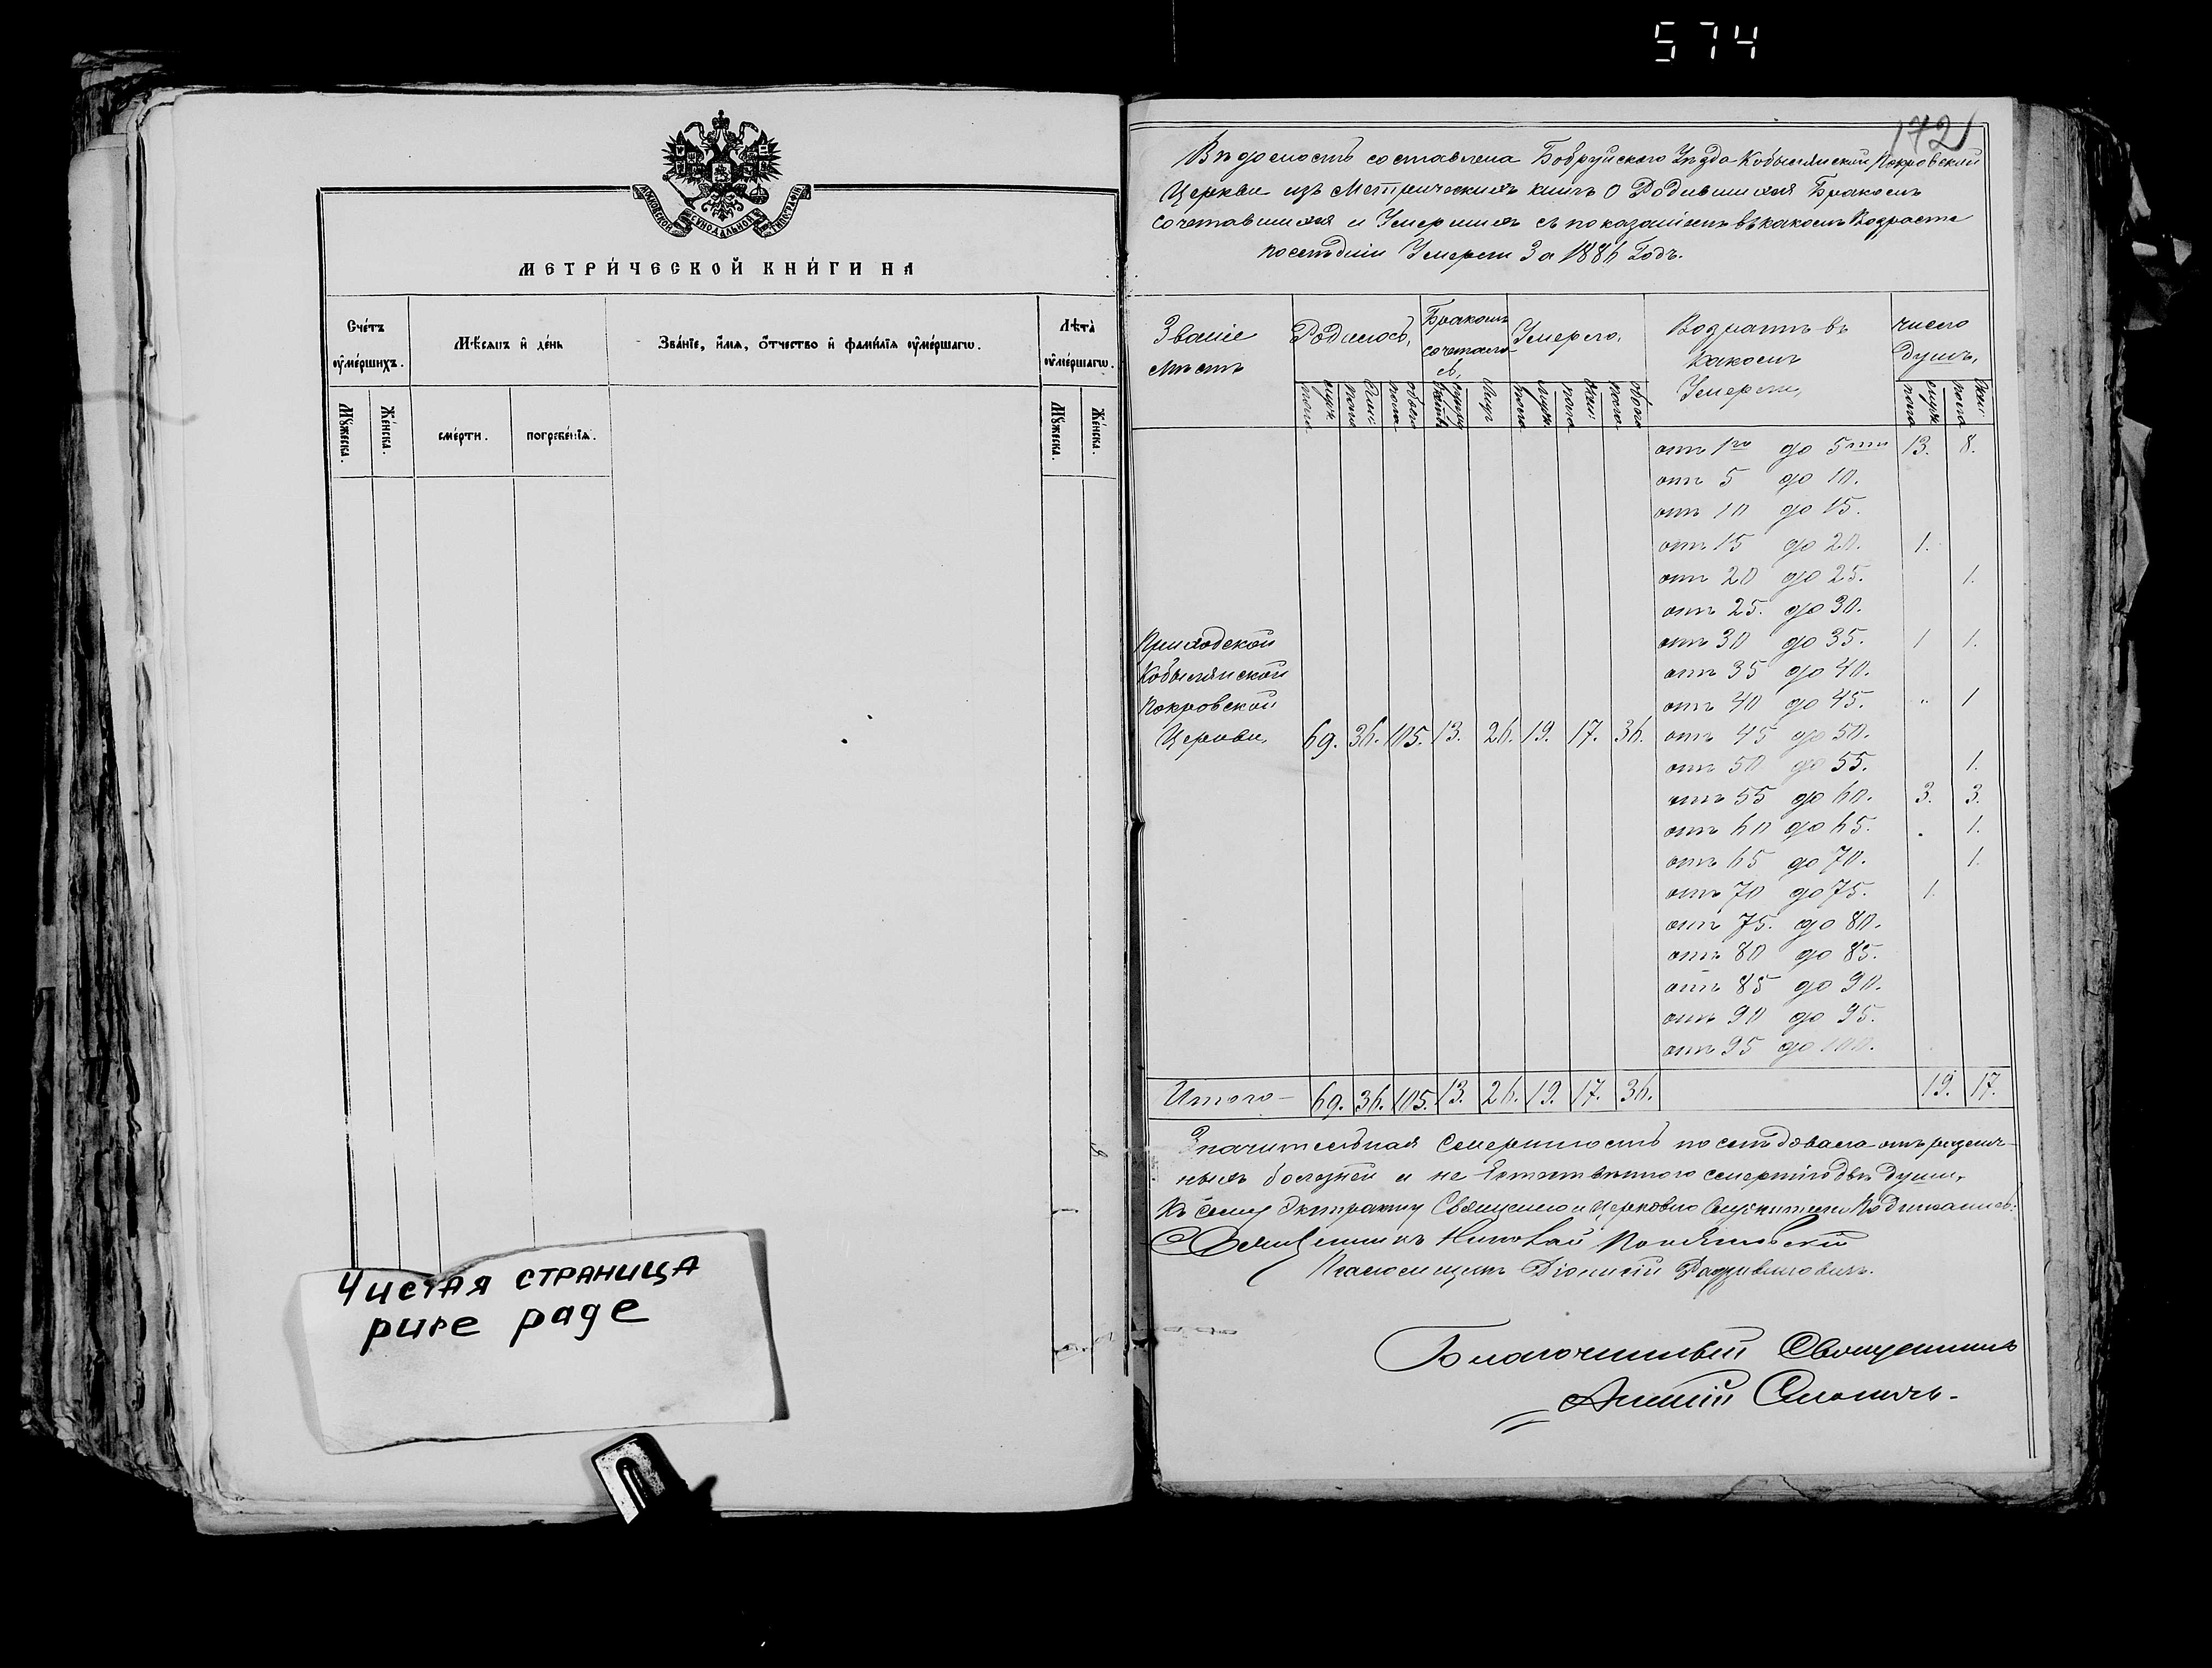 574
МОСКОВСКОЙ СѴНОДАЛЬНОЙ ТИПОГРАФІИ
МЕТРИ́ЧЕСКОЙ КНИ́ГИ НА
Сче́тъ ᲂу҆ме́ршихъ.
Мѣ́сяцъ и҆ де́нь
Зва́нїе, и҆́мя, ѻ҆́тчество и҆ фами́лїя ᲂу҆ме́ршагѡ.
Лѣ̀та ᲂу҆ме́ршагѡ.
Мꙋ́жеска.
Же́нска.
сме́рти.
погребе́нїя.
Мꙋ́жеска.
Же́нска.
Чистая страница
pure page
172
Вѣдомость составлена Бобруйского Уѣзда Кобылянский Покровский
Церкви изъ Метрическихъ книгъ о Родившихся Бракомъ
сочетавшихся и Умершихъ съ показаніемъ въ какомъ Возраста
послѣдніи Умерли За 1886 Годъ.
Званіе мѣстъ
Родилось,
Бракомъ сочеталось,
Умерло,
Возрастъ въ какомъ Умерли,
число душъ,
муж. пола
жен. пола
обоего пола
Лиц
муж. пола
жен. пола
обоего пола
муж. пола
жен. пола
отъ 1го до 5ти 13. 8.
отъ 5 до 10.
отъ 10 до 15.
отъ 15 до 20. 1.
отъ 20 до 25. 1.
отъ 25. до 30.
Приходской отъ 30 до 35. 1 1.
Кобылянской отъ 35 до 40.
Покровской отъ 40 до 45. " 1
Церкви, 69. 36. 105. 13. 26. 19. 17. 36. отъ 45 до 50.
отъ 50 до 55. 1.
отъ 55 до 60. 3. 3.
отъ 60 до 65. . 1.
отъ 65 до 70. 1.
отъ 70 до 75. 1.
отъ 75. до 80.
отъ 80 до 85.
отъ 85 до 90.
отъ 90 до 95.
отъ 95 до 100.
Итого – 69. 36. 105. 13. 26. 19. 17. 36. 19. 17.
Значительная Смертность послѣдовала отъ различ-
ныхъ болезней и не Естественного смертію двѣ души,
Къ сему Экстракту Священно и Церковно Служители Подписались:
Священникъ Николай
Псаломщикъ Діонисій
Благочинный Священникъ